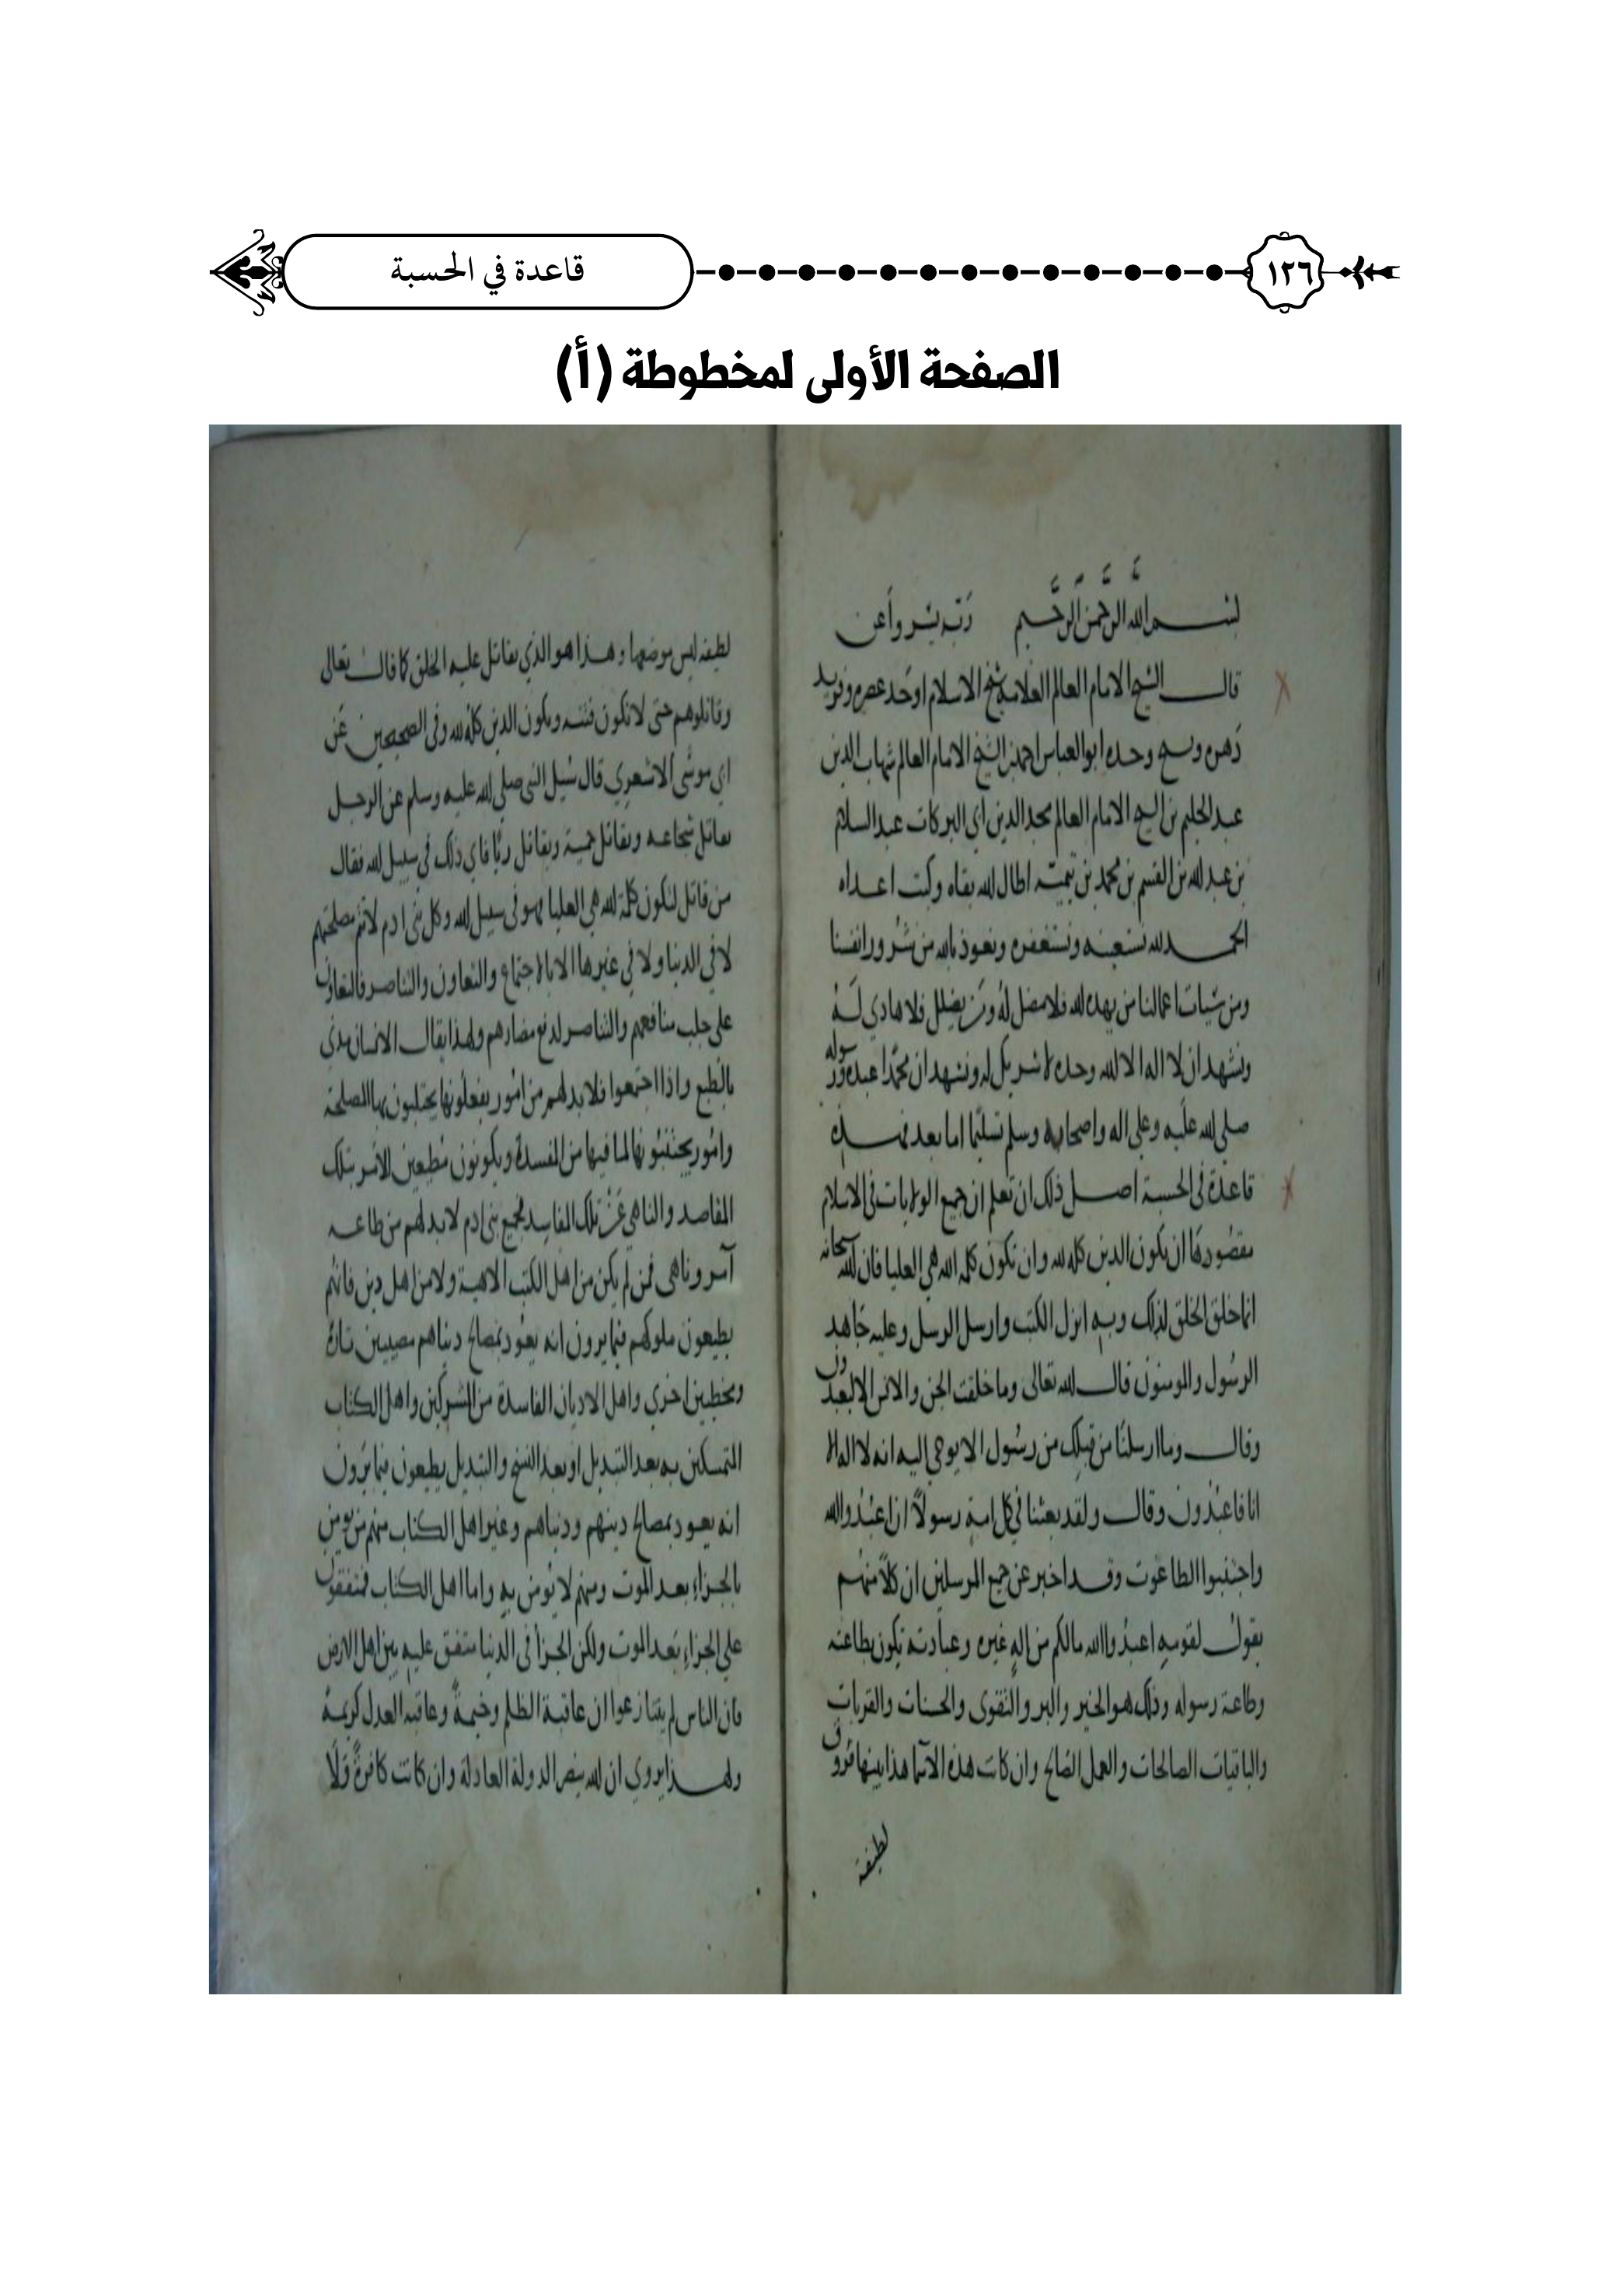 ١٢٦
قاعدة في الحسبة
الصفحة الأولى لمخطوطة (أ)
بسم الله الرحمن الرحيم رب يسر واعن
قال الشيخ الامام العالم العلامة شيخ الاسلام اوحد عصره وفريد
دهره ونسيج وحده ابو العباس احمد بن الشيخ الامام العالم شهاب الدين
عبد الحليم بن الشيخ الامام العالم مجد الدين ابي البركات عبد السلام
بن عبد الله بن القسم بن محمد بن تيمية اطال الله بقاه وكبت اعداه
الحمد لله نستعينه ونستغفره ونعوذ بالله من شرور انفسنا
ومن سيات اعمالنا من يهده الله فلا مضل له ومن يضلل فلا هادي له
ونشهد ان لا اله الا الله وحده لا شريك له ونشهد ان محمدا عبده ورسوله
صلى الله عليه وعلى اله واصحابه وسلم تسليما اما بعد فهذه
قاعدة في الحسبة اصل ذلك ان تعلم ان جميع الولايات في الاسلام
مقصودها ان يكون الدين كله لله وان تكون كلمة الله هي العليا فان الله سبحانه
انما خلق الخلق لذلك وبه انزل الكتب وارسل الرسل وعليه جاهد
الرسول والمومنون قال الله تعالى وما خلقت الجن والانس الا ليعبدون
وقال وما ارسلنا من قبلك من رسول الا يوحى اليه انه لا اله الا
انا فاعبدون وقال ولقد بعثنا في كل امة رسولا ان اعبدوا الله
واجتنبوا الطاغوت وقد اخبر عن جميع المرسلين ان كلا منهم
يقول لقومه اعبدوا الله مالكم من اله غيره وعبادته تكون بطاعته
وطاعة رسوله وذلك هو الخير والبر والتقوى والحسنات والقربات
والباقيات الصالحات والعمل الصالح وان كانت هذه الاسما هذا بينها فروق
لطيفة
لطيفة ليس موضعها وهذا هو الذي يقاتل عليه الخلق كما قال تعالى
وقاتلوهم حتى لا تكون فتنة ويكون الدين كله لله وفي الصحيحين عن
ابي موسى الاشعري قال سيل النبي صلى الله عليه وسلم عن الرجل
يقاتل شجاعة ويقاتل حمية ويقاتل ريا فاي ذلك في سبيل الله فقال
من قاتل لتكون كلمة الله هي العليا فهو في سبيل الله وكل بني ادم لا تتم مصلحتهم
لا في الدنيا ولا في غيرها الا بالاجتماع والتعاون والتناصر فالتعاون
على جلب منافعهم والتناصر لدفع مضارهم ولهذا يقال الانسان مدني
بالطبع واذا اجتمعوا فلا بد لهم من امور يفعلونها يجتلبون بها المصلحة
وامور يجتنبونها لما فيها من المفسدة ويكونون مطيعين للامر بتلك
المقاصد والناهي عن تلك المفاسد فجميع بني ادم لا بد لهم من طاعة
آمر وناهي فمن لم يكن من اهل الكتب الالهية ولا من اهل دين فانهم
يطيعون ملوكهم فيما يرون انه يعود بمصالح دنياهم مصيبين تارة
ومخطيين اخرى واهل الاديان الفاسدة من المشركين واهل الكتاب
المتمسكين به بعد التبديل او بعد النسخ والتبديل يطيعون فيما يرون
انه يعود بمصالح دينهم ودنياهم وغير اهل الكتاب منهم من يومن
بالجزاء بعد الموت ومنهم لا يومن به واما اهل الكتاب فمتفقون
على الجزاء بعد الموت ولكن الجزا في الدنيا متفق عليه بين اهل الارض
فان الناس لم يتنازعوا ان عاقبة الظلم وخيمة وعاقبة العدل كريمة
ولهذا يروى ان الله ينصر الدولة العادلة وان كانت كافرة ولا